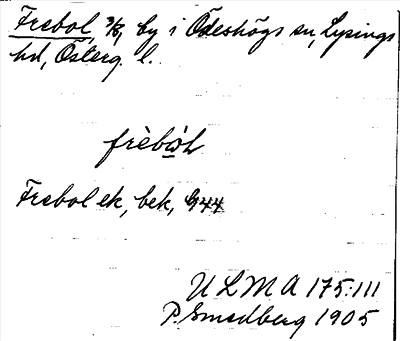 Frebol, 3/8, by i Ödeshögs sn, Lysings
hd, Österg. l.
frèbòl
Frebol ek, bek, G44
ULMA 175:111
P. Smedberg 1905